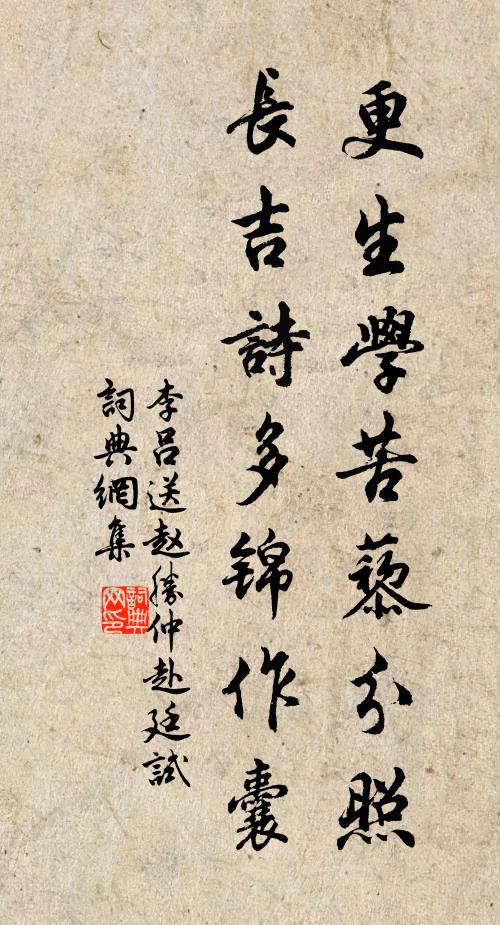 更生學苦藜分照
長吉詩多錦作囊
李吕送赵勝仲赴廷試
詞典網集
詞典网印